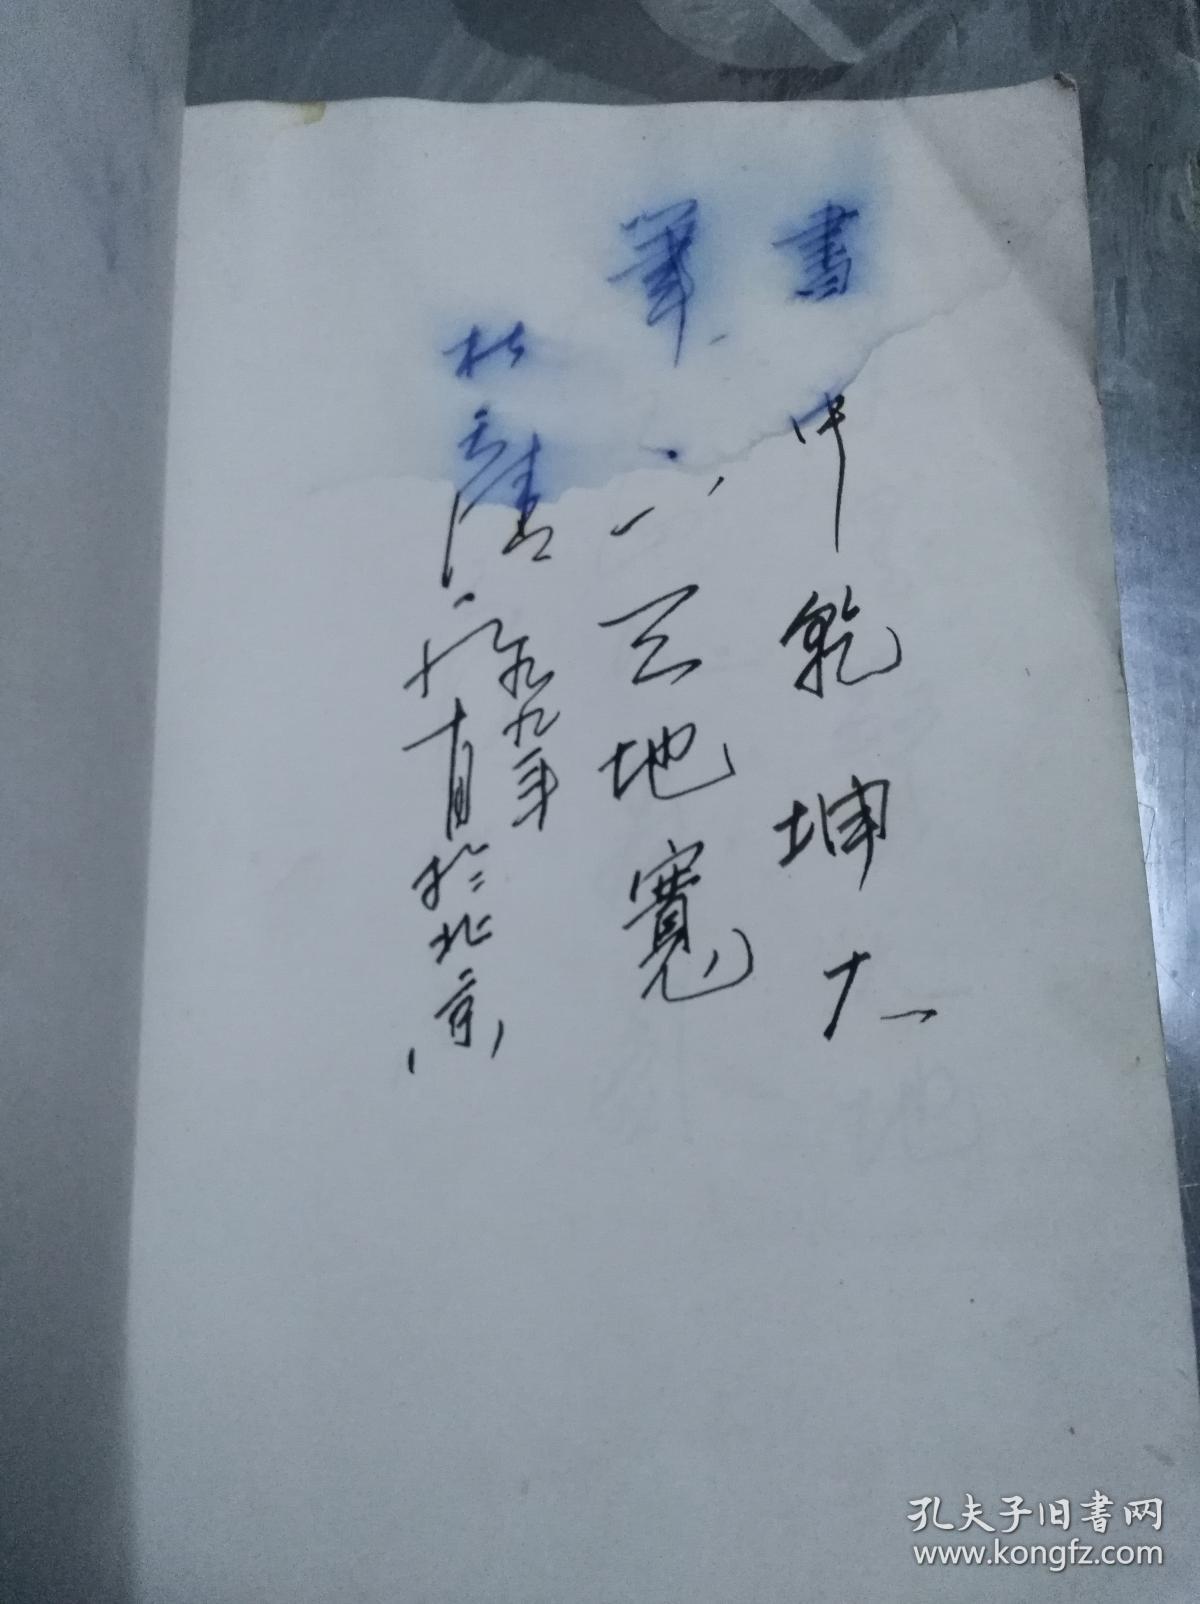 書中乾坤大
筆下天地寬
杜
九九年
月於北京
孔夫子旧书网
www.kongfz.com